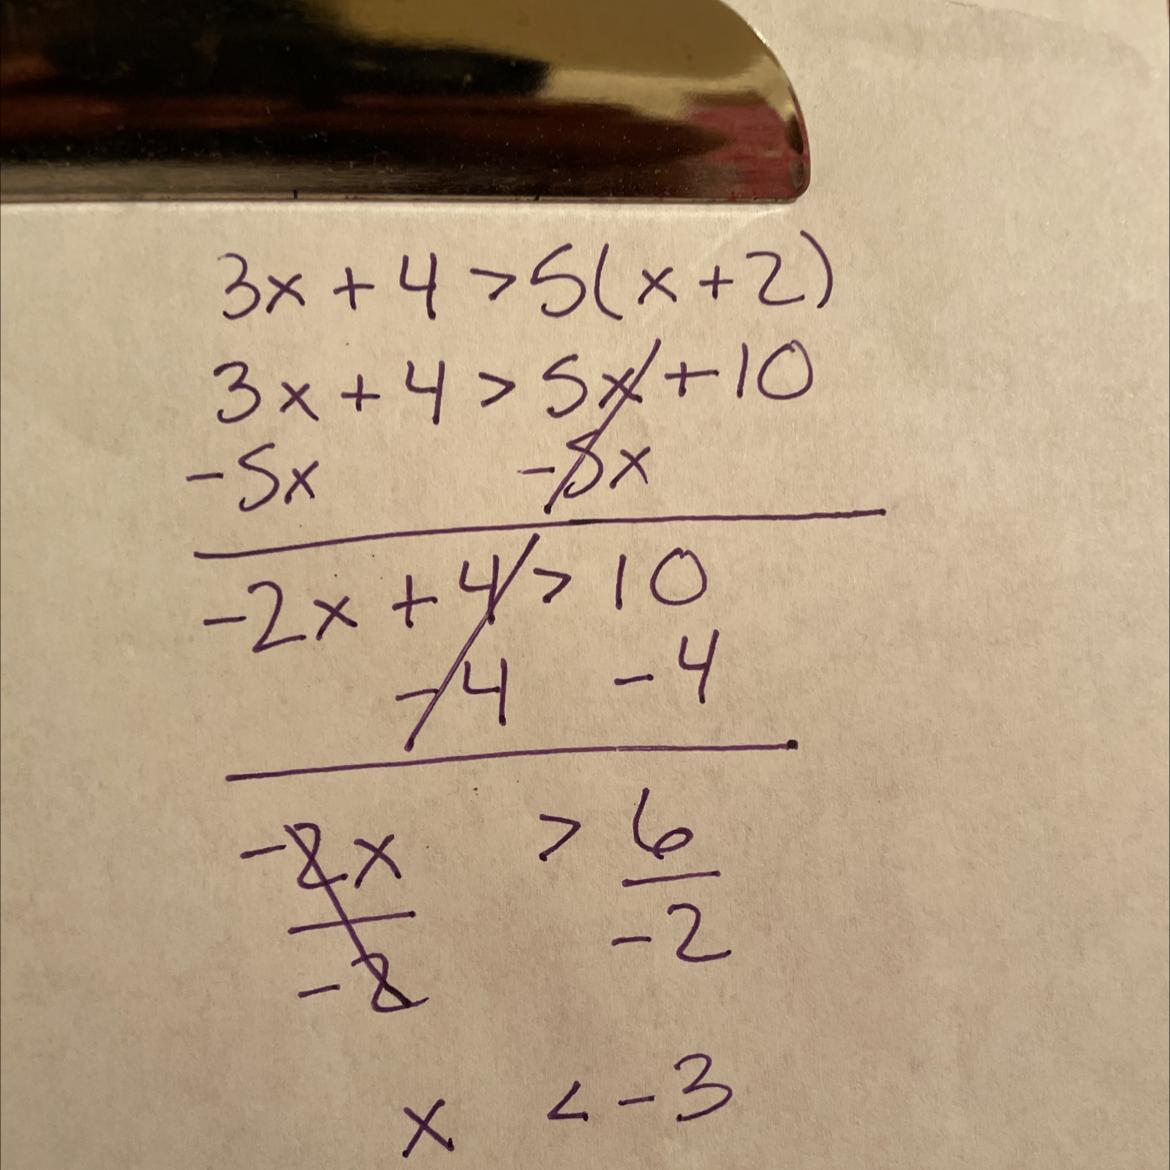 3x + 4 > 5(x + 2)
3x + 4 > 5x + 10
-5x -5x
-2x + 4 > 10
-4 -4
-2x > 6
-2 -2
x < -3